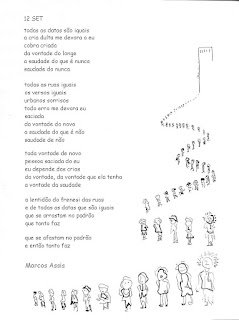 12 SET
todas as datas são iguais
a cria dulta me devora o eu
cobra criada
da vontade do longe
a saudade do que é nunca
saudade do nunca
todas as ruas iguais
os versos iguais
urbanos sorrisos
todo erro me devora eu
saciada
da vontade do novo
a saudade do que é não
saudade de não
toda vontade de novo
pessoa saciada do eu
eu depende das crias
da vontade, da vontade que ela tenha
a vontade da saudade
a lentidão do frenesi das ruas
e de todas as datas que são iguais
que se arrastam no padrão
que tanto faz
que se afastam no padrão
e então tanto faz
Marcos Assis